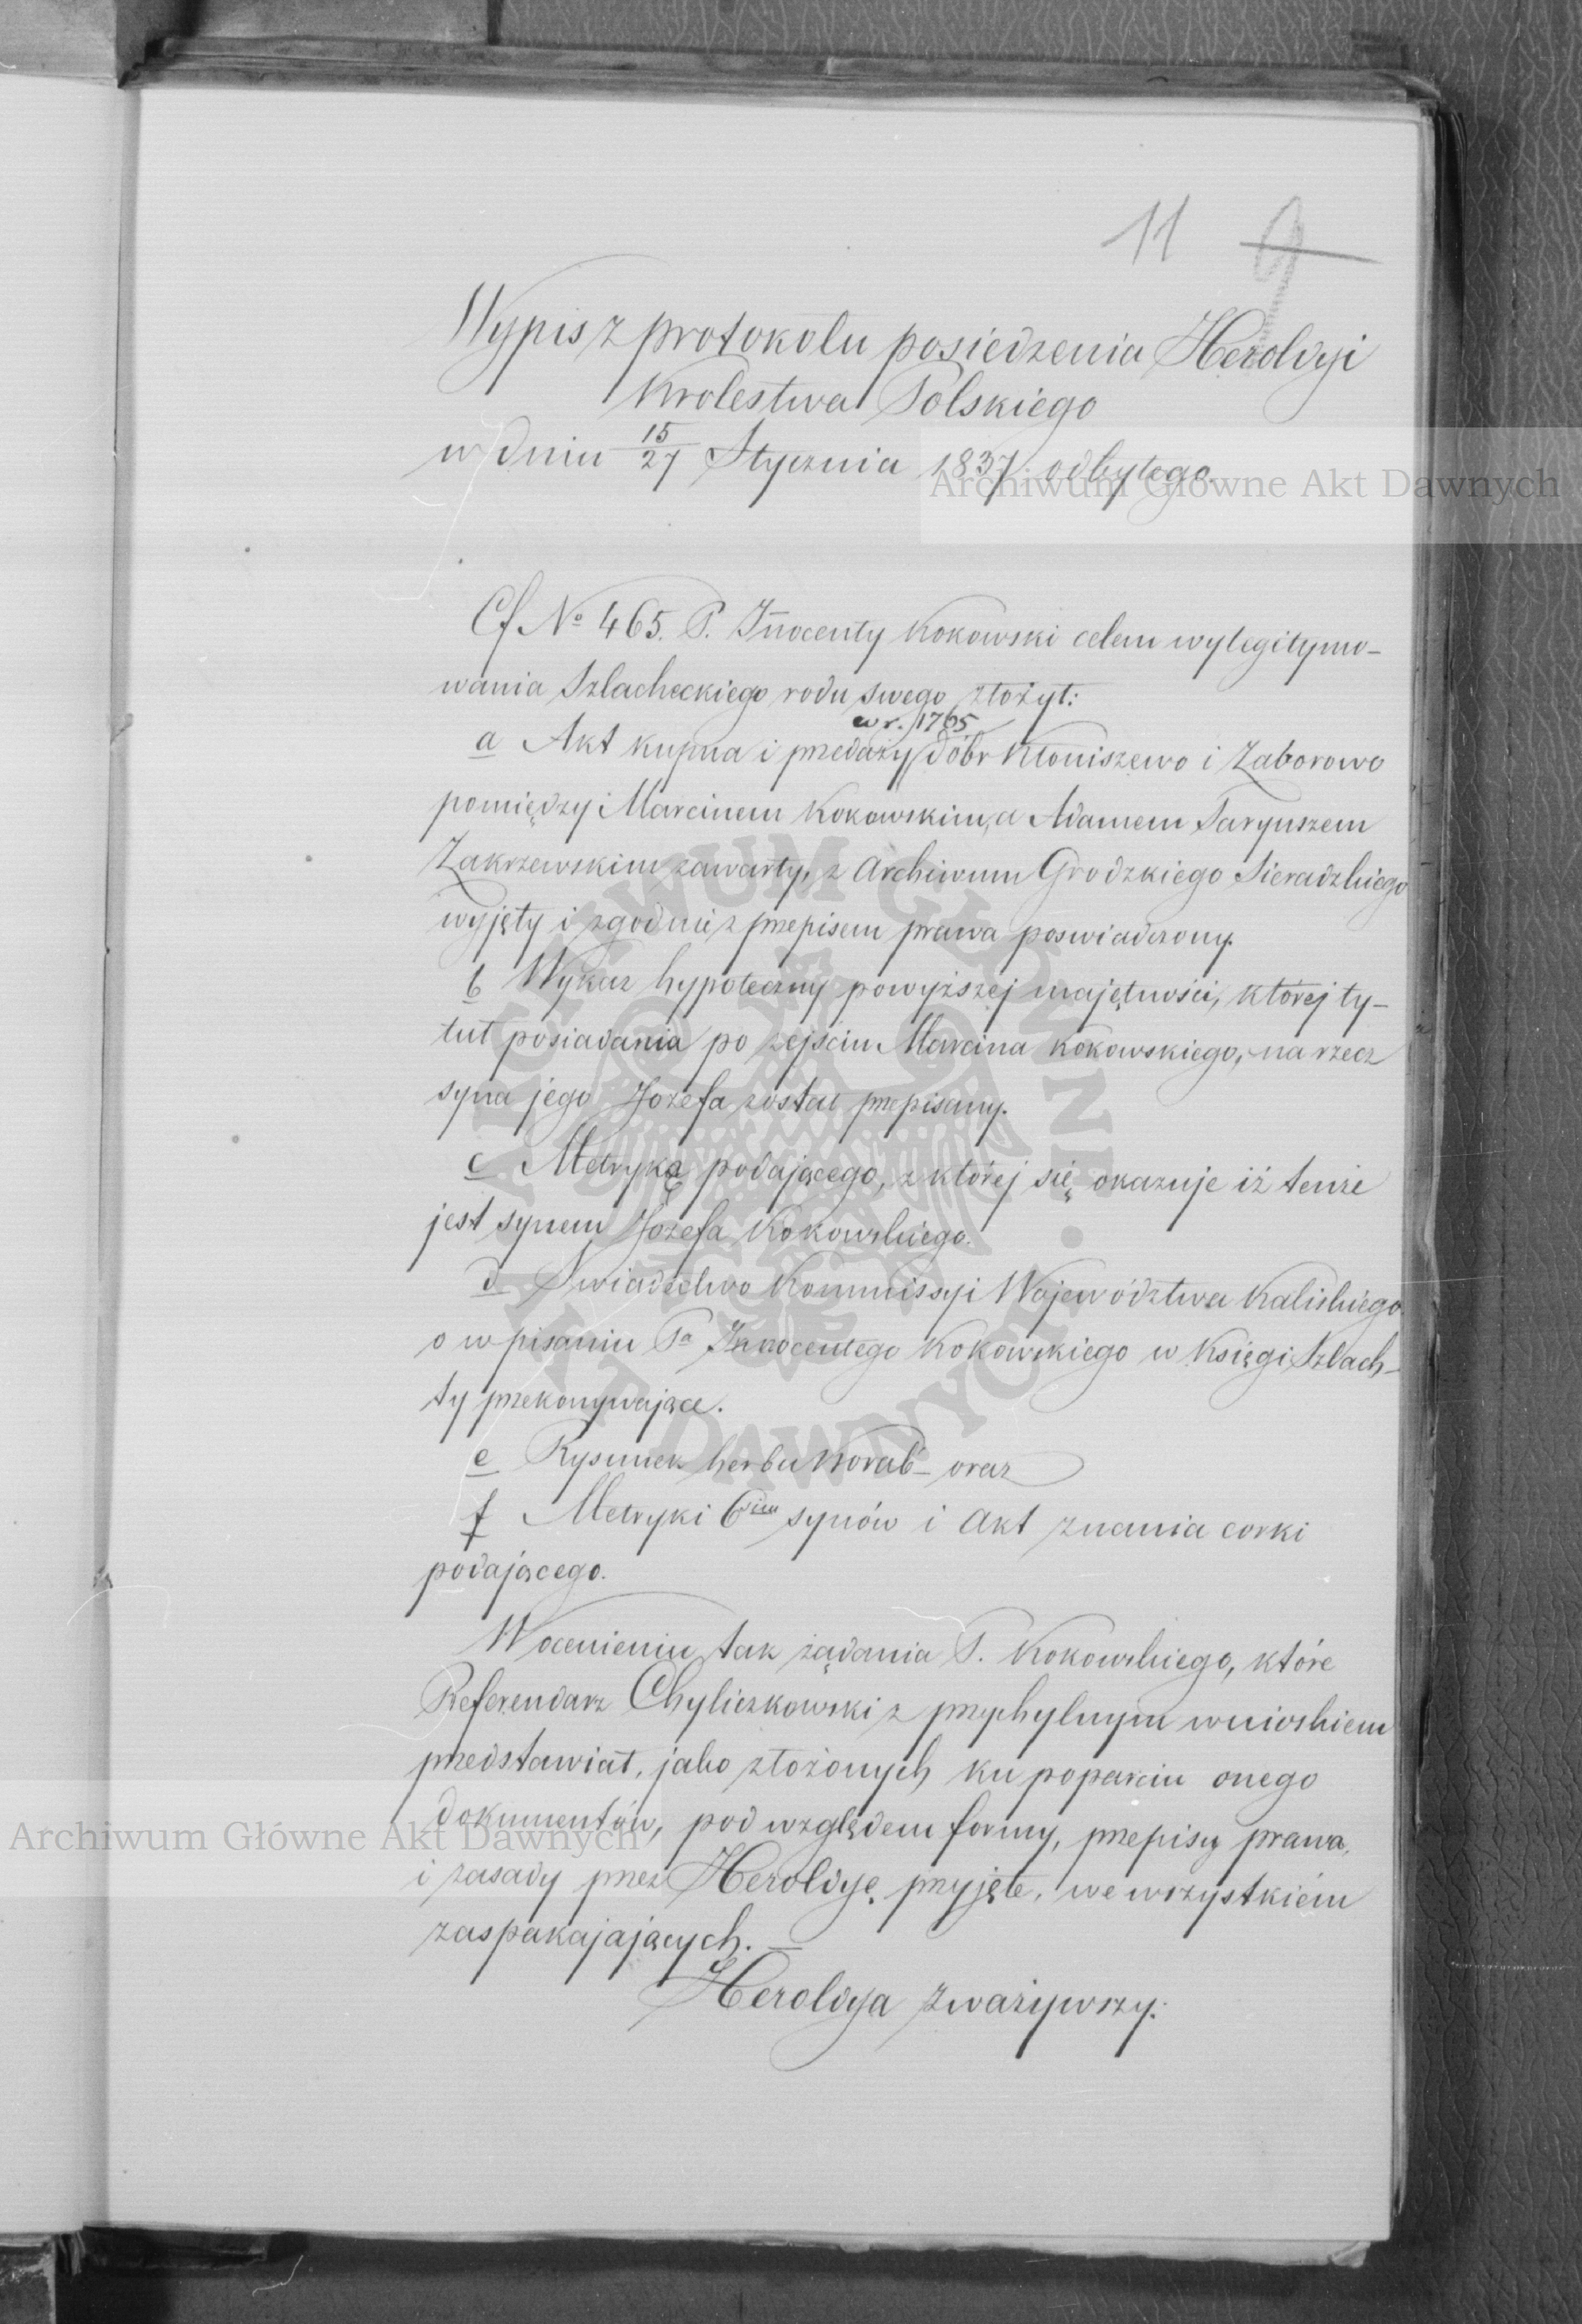 11 9
Wypis z protokolu posiedzenia Heroldyi
Krolestwa Polskiego
w dniu 15/27 Stycznia 1837 odbytego.
Archiwum Główne Akt Dawnych
Cf № 465. P. Innocenty Kokowski celem wylegitymo-
wania Szlacheckiego rodu swego złożył:
w r. 1765
a Akt kupna i przedaży dóbr Kłoniszewo i Zaborowo
pomiędzy Marcinem Kokowskim, a Adamem Taryuszem
Zakrzewskim zawarty, z Archiwum Grodzkiego Sieradzkiego
wyjęty i zgodnie z przepisem prawa poswiadczony.
b Wykaz hypoteczny powyższej majętności, której ty-
tuł posiadania po zejściu Marcina Kokowskiego, na rzecz
syna jego Jozefa został przepisany.
c Metrykę podającego, z której się okazuje iż tenże
jest synem Jozefa Kokowskiego.
d Swiadectwo Kommissyi Województwa Kaliskiego
o wpisaniu Pa Innocentego Kokowskiego w Księgi Szlach-
ty przekonywające.
e Rysunek herbu Korab' oraz
f Metryki 6ciu synów i Akt znania corki
podającego.
W ocenieniu tak żądania P. Kokowskiego, które
Referendarz Chyliczkowski z przychylnym wnioskiem
przedstawiał, jako złożonych ku poparciu onego
dokumentów, pod względem formy, przepisy prawa,
i zasady przez Heroldyę przyjęte, we wszystkiém
zaspakajających. —
Heroldya zważywszy:
Archiwum Główne Akt Dawnych
ARCHIWUM GŁÓWNE AKT DAWNYCH